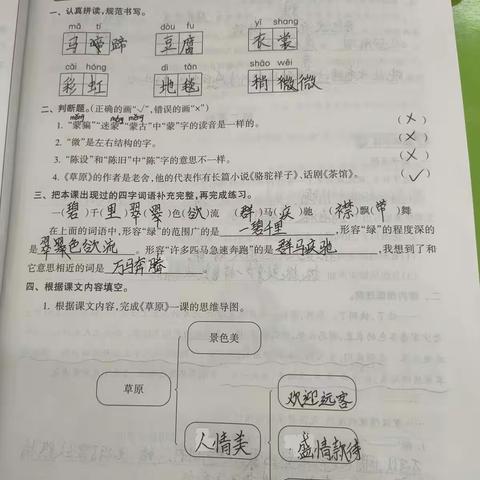 一、认真拼读,规范书写。
mǎ tí dòu fu yī shang
马蹄蹄 豆腐 衣裳
cǎi hóng dì tǎn shāo wēi
彩虹 地毯 稍微微
二、判断题。(正确的画“√”,错误的画“×”)
1. “蒙骗”“迷蒙”“蒙古”中“蒙”字的读音是一样的。 (×)
2. “微”是左右结构的字。 (×)
3. “陈设”和“陈旧”中“陈”字的意思不一样。 (×)
4. 《草原》的作者是老舍,他的代表作有长篇小说《骆驼祥子》、话剧《茶馆》。 (✓)
三、把本课出现过的四字词语补充完整,再完成练习。
一(碧)千(里) (翠)(翠)色(欲)流 (群)马(疾)驰 (襟)飘(带)舞
在上面的词语中,形容“绿”的范围广的是 一碧千里 ,形容“绿”的程度深的
是 翠色欲流 。形容“许多匹马急速奔跑”的是 群马疾驰 ,我想到了和
它意思相近的词是 万马奔腾 。
四、根据课文内容填空。
1. 根据课文内容,完成《草原》一课的思维导图。
景色美
草原
欢迎远客
人情美
盛情款待